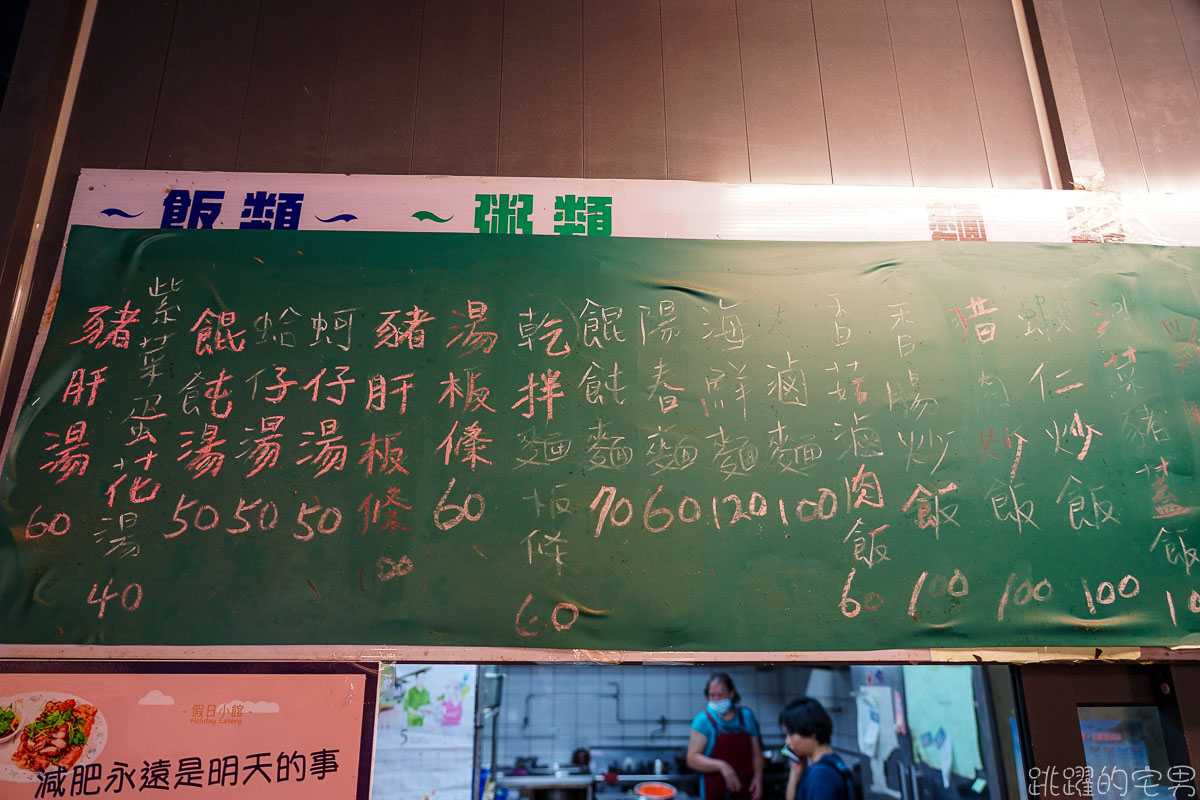 ~ 飯類 ~
~ 粥類
麵
豬肝湯 60
紫菜蛋花湯 40
餛飩湯 50
蛤仔湯 50
蚵仔湯 50
豬肝板條 100
湯板條 60
乾拌麵板條 60
餛飩麵 70
陽春麵 60
海鮮麵 120
滷麵 100
香菇滷肉飯 60
香腸炒飯 100
腊肉炒飯 100
蝦仁炒飯 100
菜豬蓋飯
- 假日小館 -
Holiday Eatery
減肥永遠是明天的事
5
跳躍的宅男